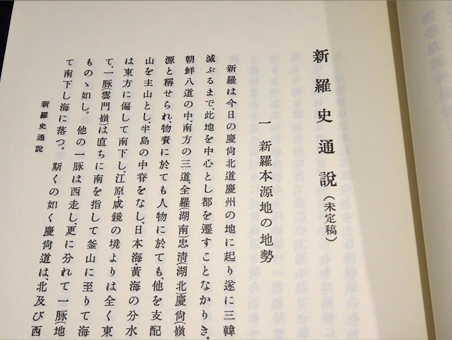 新羅史通說(未定稿)
一 新羅本源地の地勢
新羅は今日の慶尙北道慶州の地に起り遂に三韓
滅ぶるまで、此地を中心とし都を遷すことなかりき。
朝鮮八道の中、南方の三道、全羅(湖南)忠淸(湖北)慶尙(嶺
源と稱せられ、物資に於ても人物に於ても、他を支配
山を主山とし、半島の中脊をなし、日本海、黃海の分水
は東方に偏して南下し、江原咸鏡の境よりは全く東
て、一脈雲門嶺は直ちに南を指して釜山に至りて海
ものゝ如し。他の一脈は西走し、更に分れて一脈(地
て南下し海に落つ。斯くの如く慶尙道は、北及び西
新羅史通說